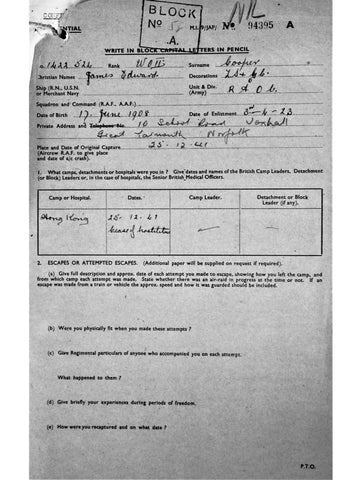 BLOCK
No
.A.
NIL
ENTIAL
M.I.9/JAP/ No 94395 A
WRITE IN BLOCK CAPITAL LETTERS IN PENCIL
Rank Surname Cooper
Christian Names James Edward Decorations
Ship (R.N., U.S.N.
or Merchant Navy
Unit & Div.
(Army) R A O C.
Squadron and Command (R.A.F., A.A.F.)
Date of Birth 17 June 1908 Date of Enlistment 3rd - 4 - 23
Private Address and Telephone No. 10 School Road
Great Yarmouth Norfolk
Place and Date of Original Capture 25 - 12 - 41
(Aircrew R.A.F. to give place
and date of a/c crash).
1. What camps, detachments or hospitals were you in? Give dates and names of the British Camp Leaders, Detachment
(or Block) Leaders or, in the case of hospitals, the Senior British Medical Officers.
Camp or Hospital. Dates. Camp Leader. Detachment or Block
Leader (if any).
Hong Kong 25 - 12 - 41 — —
2. ESCAPES OR ATTEMPTED ESCAPES. (Additional paper will be supplied on request if required).
(a) Give full description and approx. date of each attempt you made to escape, showing how you left the camp, and
from which camp each attempt was made. State whether there was an air-raid in progress at the time or not. If an
escape was made from a train or vehicle the approx. speed and how it was guarded should be included.
(b) Were you physically fit when you made these attempts?
(c) Give Regimental particulars of anyone who accompanied you on each attempt.
What happened to them?
(d) Give briefly your experiences during periods of freedom.
(e) How were you recaptured and on what date?
P.T.O.